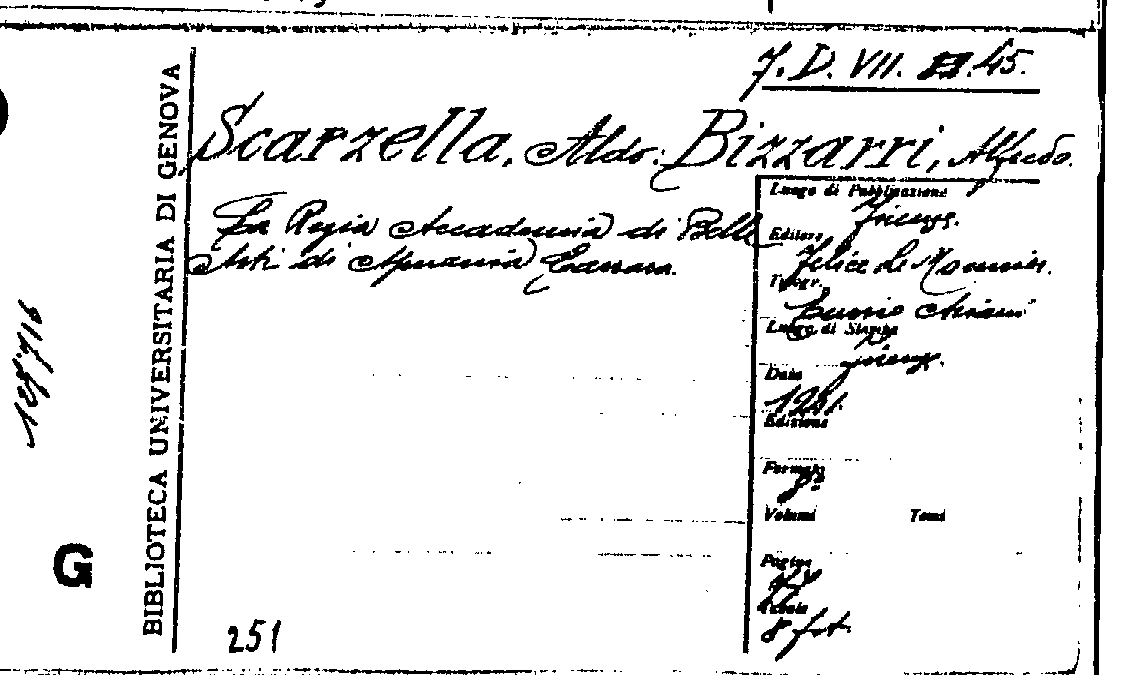 7. D. VII. 45.
BIBLIOTECA UNIVERSITARIA DI GENOVA
Scarzella, Aldo: Bizzarri, Alfredo.
La Regia Accademia di Belle
Arti di Apuania Carrara.
Luogo di Pubblicazione
Firenze.
Editore
Felice Le Monnier.
Tipogr.
Luogo di Stampa
Firenze.
Data
1941.
Edizione
Formato
8°
Volumi Tomi
Pagine
Tavole
8 fot.
G
251